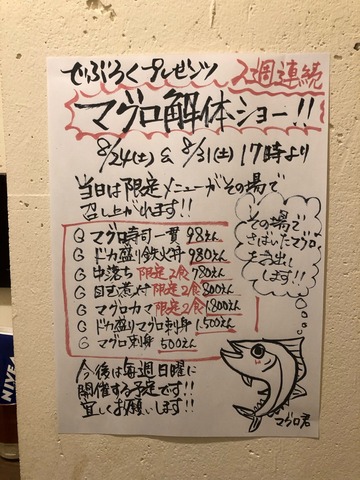 でぶろくプレゼンツ 2週連続
マグロ解体ショー!!
8/24(土) & 8/31(土) 17時より
当日は限定メニューがその場で
召し上がれます!!
その場で
さばいたマグロ
を
します!!
G マグロ寿司一貫 98えん
G ドカ盛り鉄火丼 980えん
G 中落ち 限定2食 780えん
G 目玉煮付 限定2食 800えん
G マグロカマ 限定2食 1,800えん
G ドカ盛りマグロ刺身 1,500えん
G マグロ刺身 500えん
今後は毎週日曜に
開催する予定です!!
宜しくお願いします!!
マグロ君
NIVEA